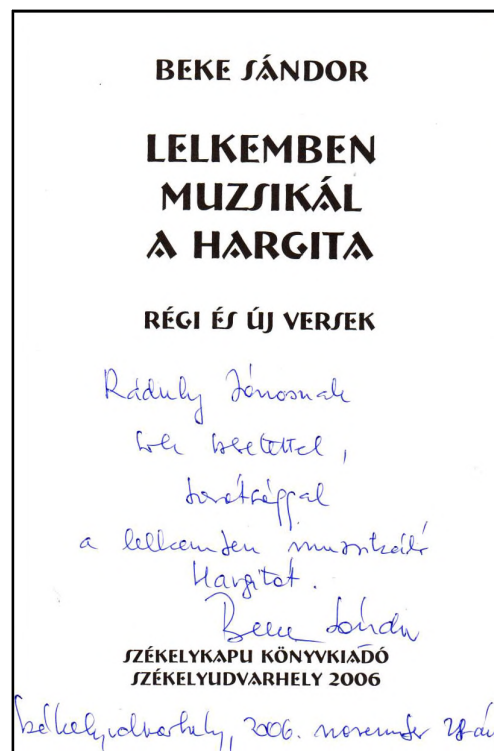 BEKE SÁNDOR
LELKEMBEN
MUZSIKÁL
A HARGITA
RÉGI ÉS ÚJ VERSEK
Ráduly Jánosnak
sok szeretettel,
barátsággal
a lelkemben muzsikáló
Hargitát.
Beke Sándor
SZÉKELYKAPU KÖNYVKIADÓ
SZÉKELYUDVARHELY 2006
Székelyudvarhely, 2006. november 28-án